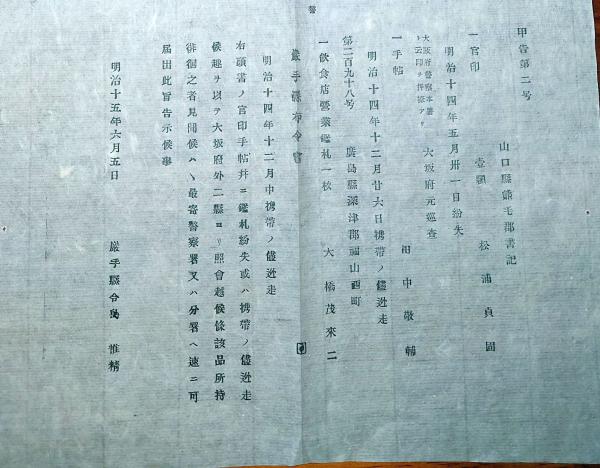 警
甲告第二号
山口縣熊毛郡書記
一官印 壹顆 松浦貞固
明治十四年五月卅一日紛失
大阪府警察本署
ト云印ヲ押捺アリ 大坂府元巡査
一手帖 田中敬輔
明治十四年十二月廿六日携帶ノ儘迯走
第二百九十八号 廣島縣深津郡福山西町
一飲食店營業鑑札一枚 大橋茂來二
巌手縣布令書
明治十四年十二月中携帶ノ儘迯走
右顕書ノ官印手帖幷ニ鑑札紛失或ハ携帶ノ儘迯走
候趣ヲ以テ大坂府外二縣ヨリ照會越候條該品所持
徘徊之者見聞候ハヽ最寄警察署又ハ分署ヘ速ニ可
届出此旨告示候事
明治十五年六月五日 巌手縣令島 惟精